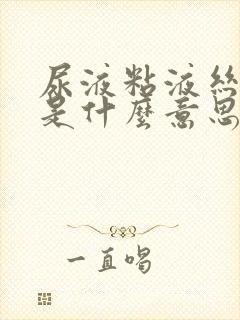 尿液粘液絲
是什麼意思
一直唱